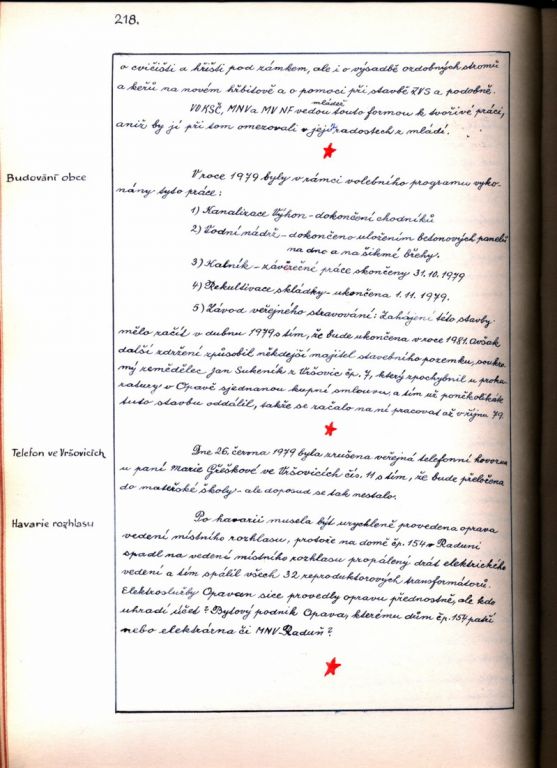 218.
o cvičišti a hřišti pod zámkem, ale i o výsadbě ozdobných stromů
a keřů na novém hřbitově a o pomoci při stavbě ZVS a podobně.
VO KSČ, MNV a MV NF vedou touto formou k tvořivé práci,
mládež
aniž by ji při tom omezovali v jejích radostech z mládí.
Budování obce
V roce 1979 byly v rámci volebního programu vyko-
nány tyto práce:
1) Kanalizace Výhon - dokončení chodníků
2) Vodní nádrž - dokončeno uložením betonových panelů
na dno a na šikmé břehy.
3) Katník - závěrečné práce skončeny 31.10.1979
4) Rekultivace skládky - ukončena 1.11.1979.
5) Závod veřejného stravování: Zahájení této stavby
mělo začít v dubnu 1979 s tím, že bude ukončena v roce 1981. Avšak
další zdržení způsobil někdejší majitel stavebního pozemku, soukro-
mý zemědělec Jan Sukeník z Vršovic čp. 7, který zpochybnil u proku-
ratury v Opavě sjednanou kupní smlouvu, a tím už poněkolikáté
tuto stavbu oddálil, takže se začalo na ní pracovat až v říjnu 79
Telefon ve Vršovicích
Dne 26. června 1979 byla zrušena veřejná telefonní hovorna
u paní Marie Gřeškové ve Vršovicích čís. 11, s tím, že bude přeložena
do mateřské školy - ale doposud se tak nestalo.
Havarie rozhlasu
Po havarii musela být urychleně provedena oprava
vedení místního rozhlasu, protože na domě čp. 154 v Raduni
spadl na vedení místního rozhlasu propálený drát elektrického
vedení a tím spálil všech 32 reproduktorových transformátorů.
Elektroslužby Opavem sice provedly opravu přednostně, ale kdo
uhradí účet? Bytový podnik Opava, kterému dům čp. 154 patří
nebo elektrárna či MNV Raduň?